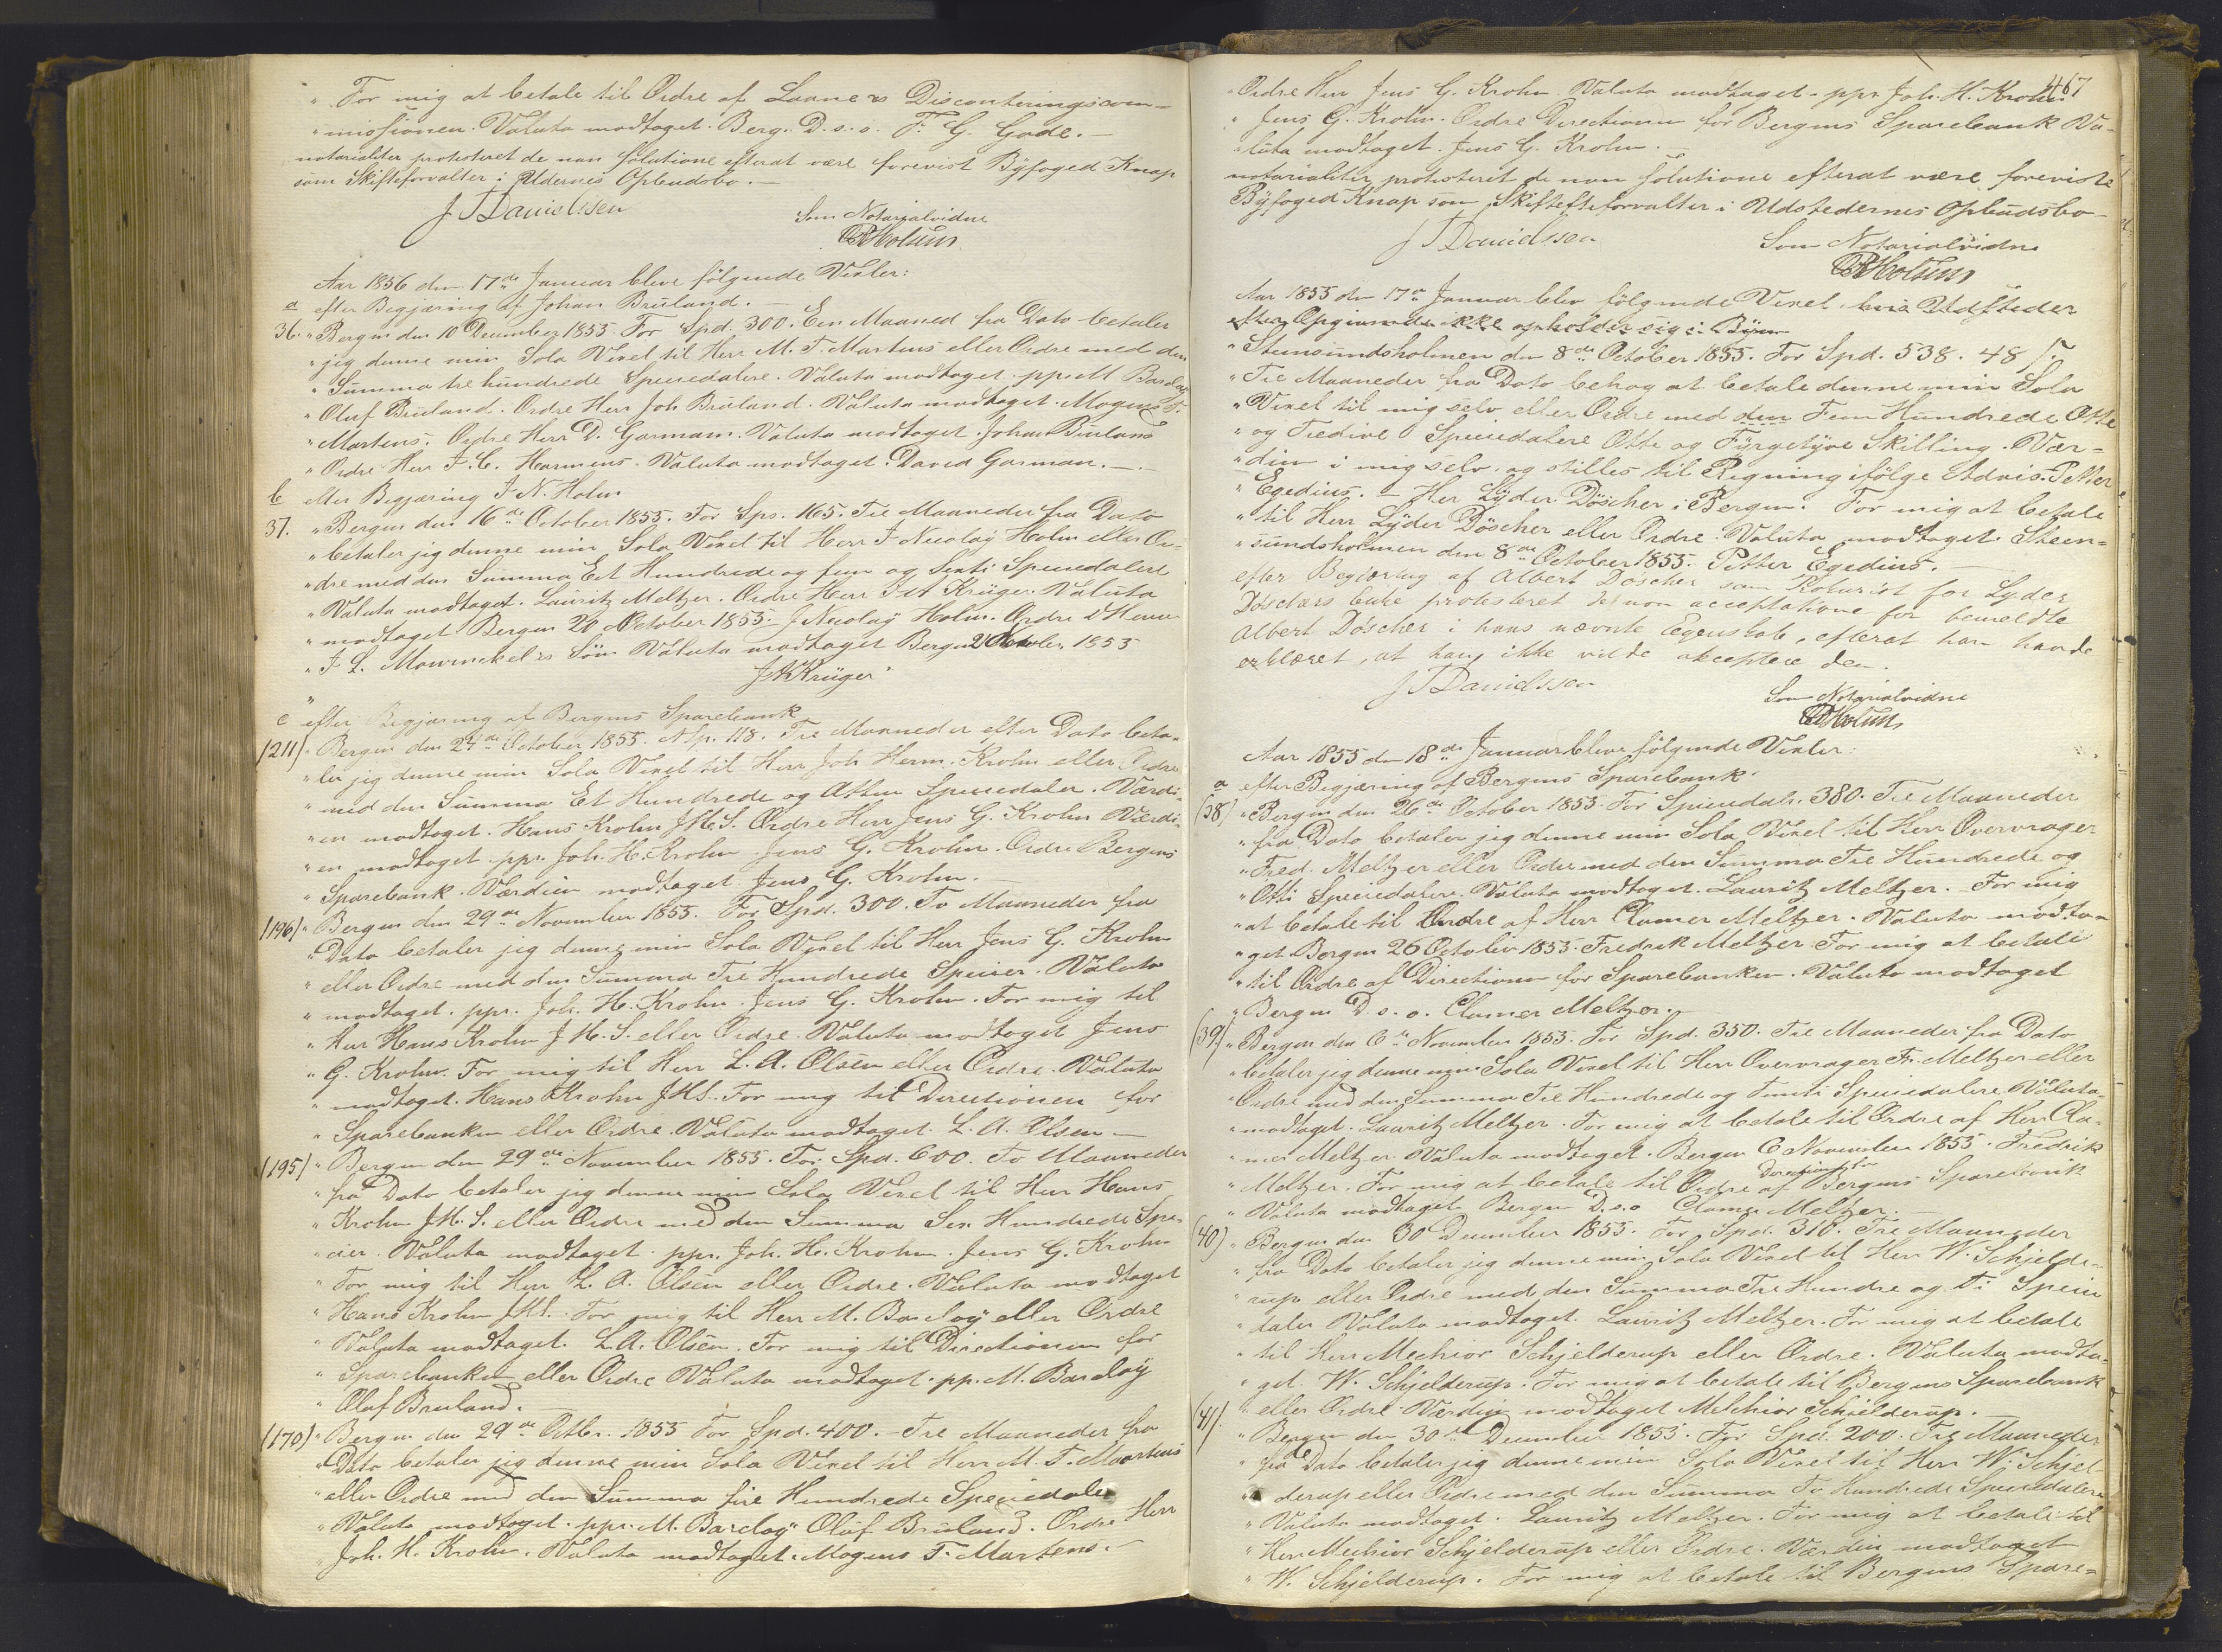 " For mig at betale til Ordre af Laane & Disconteringscom-
" missionen. Valuta modtaget. Berg. D. s. o. F. G. Gade. —
notarialiter protesteret de non solutione efterat være forevist Byfoged Knap
som Skifteforvalter i Udernes Opbudsbo. —
J Danielssen Som Notarialvidne
Holum
Aar 1856 den 17de Januar bleve følgende Vexler:
a efter Begjæring af Johan Bruland. —
36. " Bergen den 10 December 1855. For Spd. 300. Een Maaned fra Dato betaler
" jeg denne min Sola Vexel til Herr M. F. Martens eller Ordre med den
" Summa tre hundrede Speciedalere. Valuta modtaget pp. M Barclay
" Oluf Bruland. Ordre Herr Joh Bruland. Valuta modtaget. Mogens F.
" Martens. Ordre Herr D. Garmann. Valuta modtaget. Johan Bruland
" Ordre Herr F. C. Harmens. Valuta modtaget. David Garman. —
b efter Begjæring J. N. Holm
37. " Bergen den 16de October 1855. For Sps. 165. Tre Maaneder fra Dato
" betaler jeg denne min Sola Vexel til Herr J Nicolay Holm eller Or-
" dre med den Summa Eet Hundrede og fem og Sexti Speciedalere
" Valuta modtaget. Lauritz Meltzer. Ordre Herr J A Krüger. Valuta
" modtaget Bergen 20 October 1855. J Nicolay Holm. Ordre d'Herrer
" J. L. Mowinckel & Søn Valuta modtaget Bergen 21 October 1855
J A Krüger "
c efter Begjæring af Bergens Sparebank
(211) " Bergen den 24de October 1855. N Sp. 118. Tre Maaneder efter Dato beta-
" ler jeg denne min Sola Vexel til Herr Joh Herm. Krohn eller Ordre
" med den Summa Et Hundrede og Atten Speciedaler. Værdi-
" en modtaget. Hans Krohn J.H.S. Ordre Herr Jens G. Krohn Værdi-
" en modtaget ppr. Joh. H. Krohn Jens G. Krohn. Ordre Bergens
" Sparebank. Værdien modtaget Jens G. Krohn. —
(196) " Bergen den 29de November 1855. For Spd. 300. To Maaneder fra
" Dato betaler jeg denne min Sola Vexel til Herr Jens G. Krohn
" eller Ordre med den Summa Tre Hundrede Specier. Valuta
" modtaget. ppr. Joh. H. Krohn. Jens G. Krohn. For mig til
" Herr Hans Krohn J. H. S. eller Ordre. Valuta modtaget Jens
" G. Krohn. For mig til Herr L. A. Olsen eller Ordre. Valuta
" modtaget. Hans Krohn JHS. For mig til Directionen for
" Sparebanken eller Ordre. Valuta modtaget. L. A. Olsen —
(195) " Bergen den 29de November 1855. For Spd. 600. To Maaneder
" fra Dato betaler jeg denne min Sola Vexel til Herr Hans
" Krohn J.H.S. eller Ordre med den Summa Sex Hundrede Spe-
" cier. Valuta modtaget. ppr. Joh. H. Krohn. Jens G. Krohn
" For mig til Herr L. A. Olsen eller Ordre. Valuta modtaget
" Hans Krohn JHS. For mig til Herr M. Barclay eller Ordre
" Valuta modtaget. L. A. Olsen. For mig til Directionen for
" Sparebanken eller Ordre Valuta modtaget. pp. M. Barclay
" Oluf Bruland. —
(170) " Bergen den 29de Octbr. 1855 For Spd. 400. – Tre Maaneder fra
" Dato betaler jeg denne min Sola Vexel til Herr M. F. Martens
" eller Ordre med den Summa fire Hundrede Speciedaler
" Valuta modtaget. ppr. M. Barclay Oluf Bruland. Ordre Herr
" Joh. H. Krohn. Valuta modtaget. Mogens F. Martens. –
467
" Ordre Herr Jens G. Krohn. Valuta modtaget. ppr Joh. H. Krohn
" Jens G. Krohn. Ordre Directionen for Bergens Sparebank Va-
" luta modtaget. Jens G. Krohn. —
notarialiter protesterit de non solutione efterat være foreviste
Byfoged Knap som Skifteforvalter i Udstedernes Opbudsbo —
J Danielssen Som Notarialvidne
Holum
Aar 1855 den 17de Januar blev følgende Vexel, hvis Udsteder
efter Opgivende ikke opholder sig i Byen
" Steensundsholmen den 8de October 1855. For Spd. 538. 48 s.
" Tre Maaneder fra Dato behag at betale denne min Sola
" Vexel til mig selv eller Ordre med den Fem Hundrede Otte
" og Tredive Speciedalere Otte og Fyrgetyve Skilling. Vær-
" dien i mig selv og stilles til Regning ifølge Advis. Petter
" Egedius. — Her Lyder Döscher i Bergen. For mig at betale
" til Herr Lyder Döscher eller Ordre. Valuta modtaget. Steen-
" sundsholmen den 8de October 1855. Petter Egedius. —
efter Begjæring af Albert Döscher som Prokurist for Lyder
Döschers blev protesteret de non acceptatione for bemeldte
Albert Döscher i hans nævnte Egenskab, efterat han havde
erklæret, at han ikke vilde akceptere den.
J Danielssen Som Notarialvidne
Holum
Aar 1855 den 18de Januar bleve følgende Vexler:
a efter Begjæring af Bergens Sparebank.
(38) " Bergen den 26de October 1855. For Speciedalr. 380. Tre Maaneder
" fra Dato betaler jeg denne min Sola Vexel til Herr Overvrager
" Fred. Meltzer eller Ordre med den Summa Tre Hundrede og
" Otti Speciedalere. Valuta modtaget. Lauritz Meltzer. For mig
" at betale til Ordre af Herr Clamer Meltzer. Valuta modta-
" get Bergen 26 October 1855. Fredrik Meltzer For mig at betale
" til Ordre af Directionen for Sparebanken. Valuta modtaget
" Bergen D. s. o. Clamer Meltzer.
(39) " Bergen den 6te November 1855. For Spd. 350. Tre Maaneder fra Dato
" betaler jeg denne min Sola Vexel til Herr Overvrager Fr. Meltzer eller
" Ordre med den Summa Tre Hundrede og Femti Speciedalere. Valuta
" modtaget. Lauritz Meltzer. For mig at betale til Ordre af Herr Cla-
" mer Meltzer. Valuta modtaget. Bergen 6 November 1855. Fredrik
" Meltzer. For mig at betale til Ordre af Directionen for Bergens Sparebank
" Valuta modtaget Bergen D. s. o Clamer Meltzer. —
(40) " Bergen den 30 December 1855. For Spd. 310. Tre Maaneder
" fra Dato betaler jeg denne min Sola Vexel til Herr W. Schjelde-
" rup eller Ordre med den Summa Tre Hundre og Ti Specie
" daler Valuta modtaget. Lauritz Meltzer. For mig at betale
" til Herr Mechior Schjelderup eller Ordre. Valuta modta-
" get W. Schjelderup. For mig at betale til Bergens Sparebank
" eller Ordre Værdien modtaget Melchior Schjelderup. —
(41). " Bergen den 30te December 1855. For Spd. 200. Tre Maaneder
" fra Dato betaler jeg denne min Sola Vexel til Herr W. Schjel-
" derup eller Ordre med den Summa To Hundrede Speciedalere
" Valuta modtaget. Lauritz Meltzer. For mig at betale til
" Herr Mechior Schjelderup eller Ordre. Værdien modtaget
" W. Schjelderup. For mig at betale til Bergens Spare-